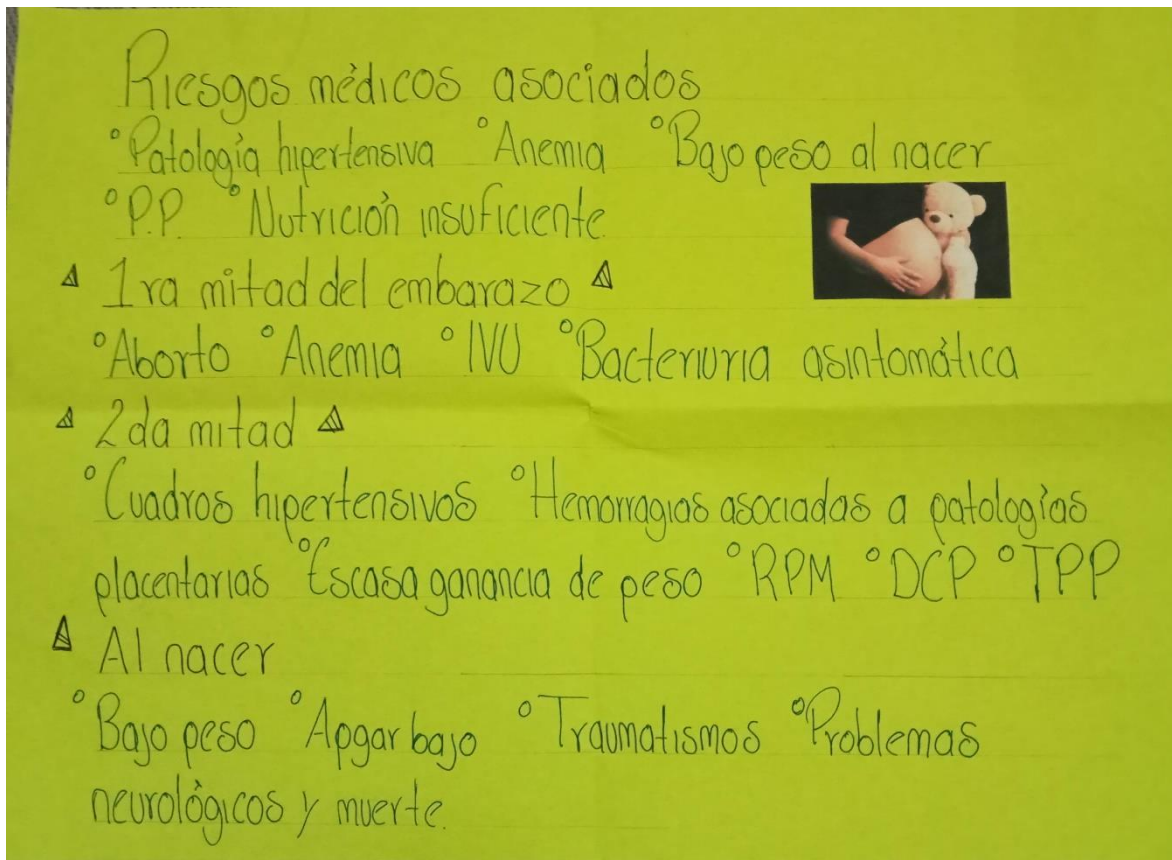 Riesgos médicos asociados
°Patología hipertensiva °Anemia °Bajo peso al nacer
°P.P. °Nutrición insuficiente.
1ra mitad del embarazo
°Aborto °Anemia °IVU °Bacteriuria asintomática
2da mitad
°Cuadros hipertensivos °Hemorragias asociadas a patologías
placentarias °Escasa ganancia de peso °RPM °DCP °TPP
Al nacer
°Bajo peso °Apgar bajo °Traumatismos °Problemas
neurológicos y muerte.